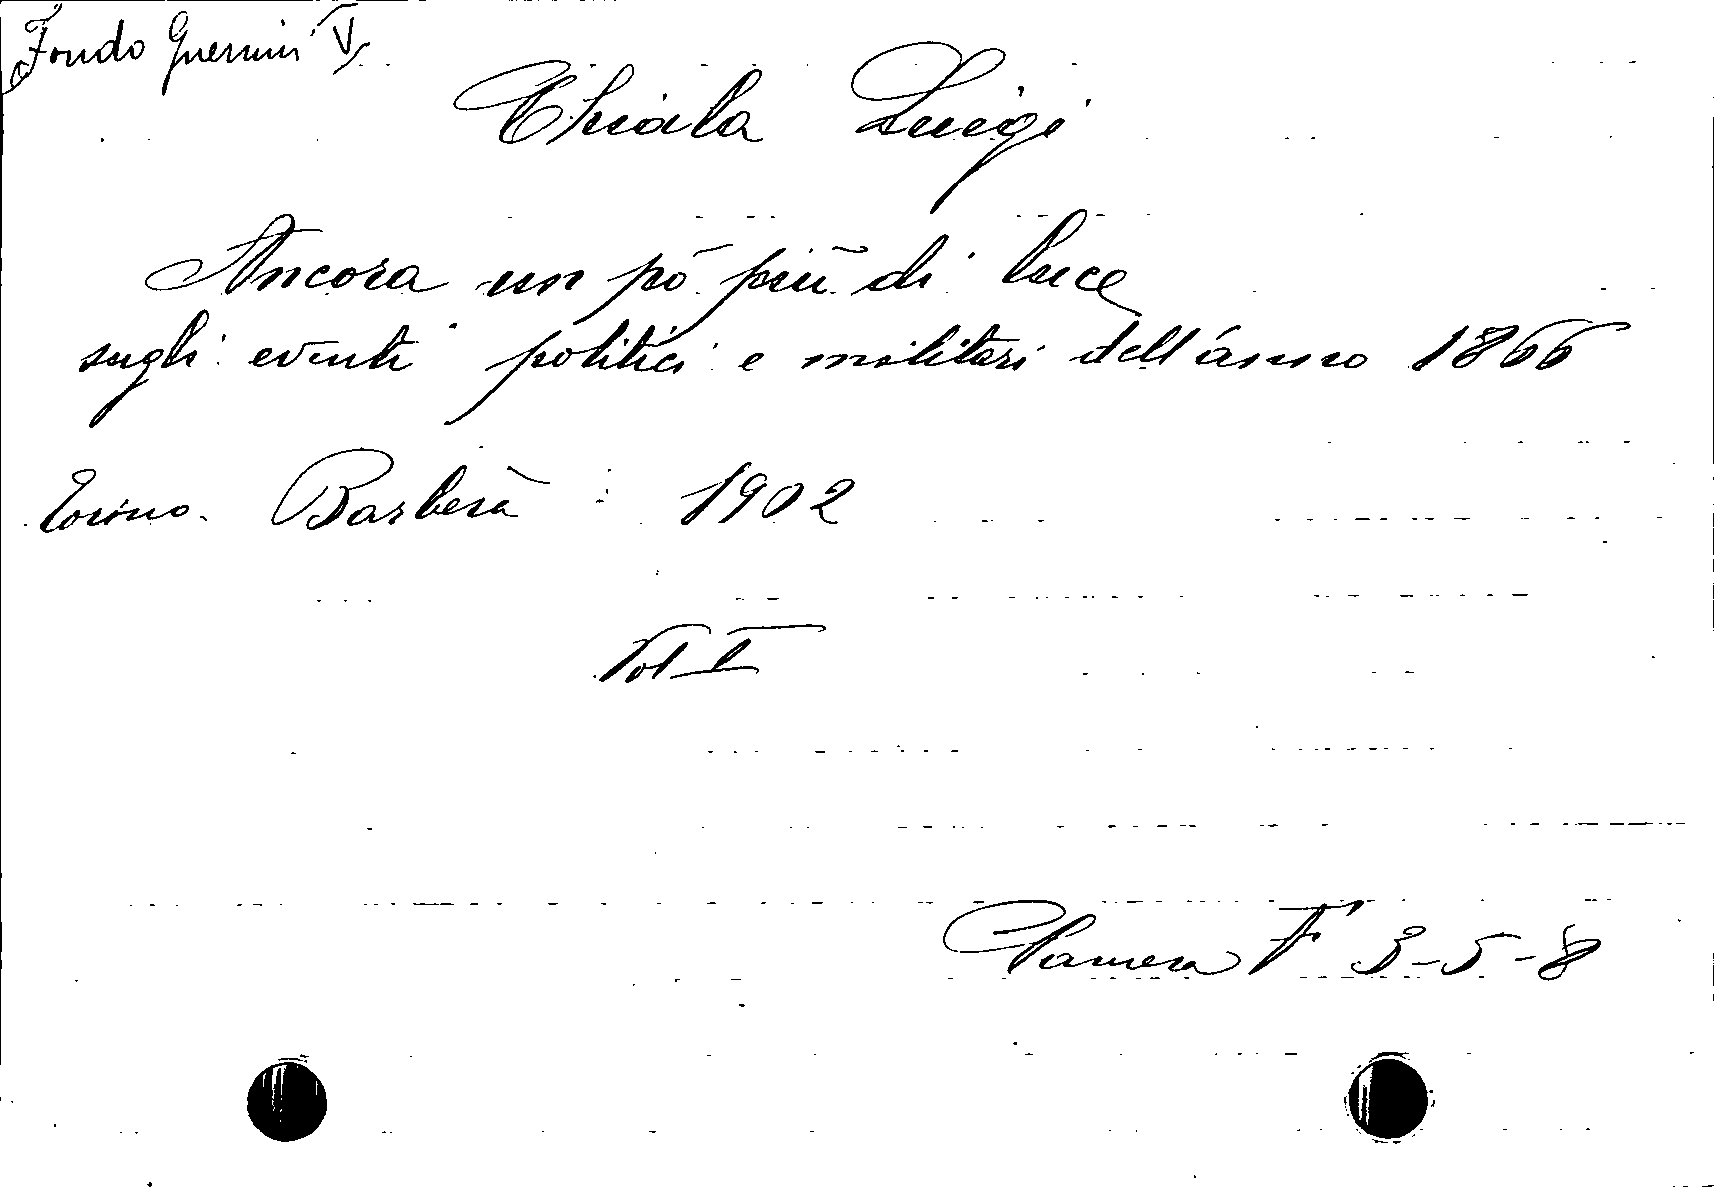 Fondo Guerrini V.
Chiala Luigi
Ancora un pò più di luce
sugli eventi politici e militari dell'anno 1866
Torino. Barberà 1902
Vol I
Camera F 3-5-8